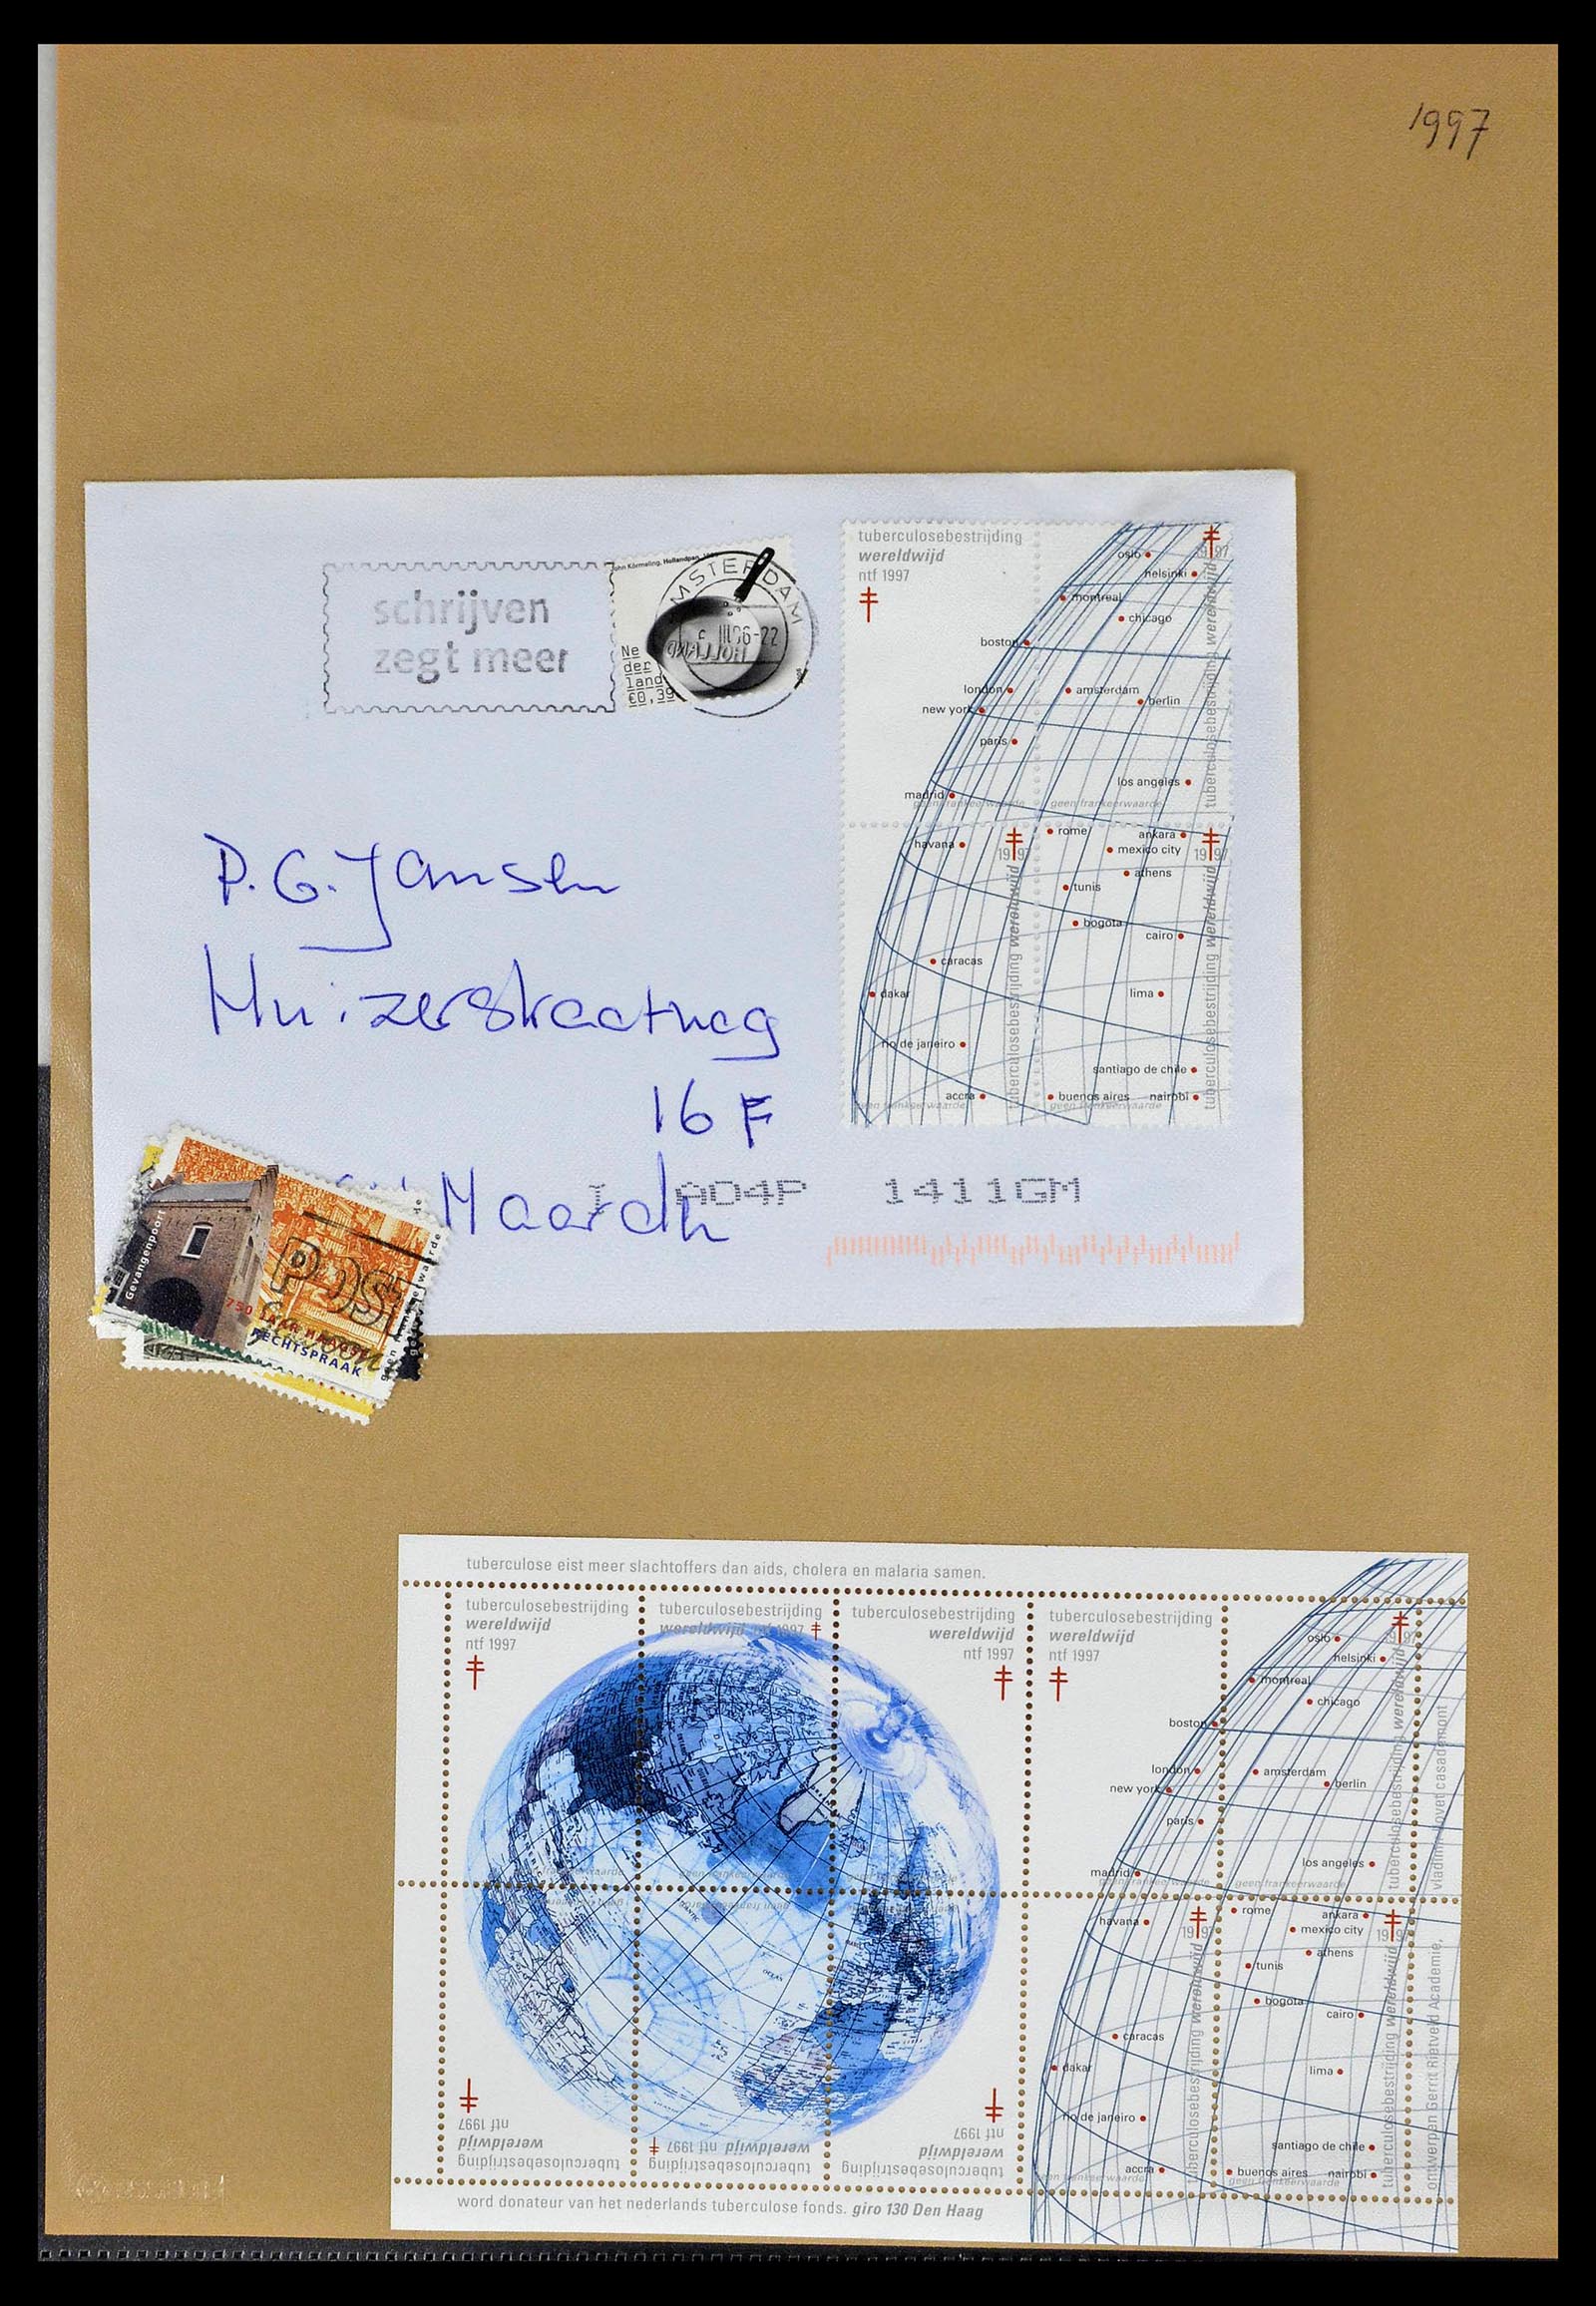 1997
schrijven
zegt meer
Ne
der
land
€0,39
AMSTERDAM
HOLLAND
tuberculosebestrijding
wereldwijd
ntf 1997
1997
oslo
helsinki
montreal
chicago
boston
london
amsterdam
new york
berlin
paris
los angeles
madrid
geen frankeerwaarde
geen frankeerwaarde
tuberculosebestrijding wereldwijd
rome
ankara
havana
1997
mexico city
1997
athens
tunis
bogota
cairo
caracas
dakar
lima
rio de janeiro
santiago de chile
accra
buenos aires
nairobi
geen frankeerwaarde
geen frankeerwaarde
tuberculosebestrijding wereldwijd
tuberculosebestrijding wereldwijd
P.G. Jansen
16 F
AD4P 1411GM
Gevangenpoort
POST
750
JAAR HAAGSE
RECHTSPRAAK
tuberculose eist meer slachtoffers dan aids, cholera en malaria samen.
tuberculosebestrijding
wereldwijd
ntf 1997
tuberculosebestrijding
wereldwijd ntf 1997
tuberculosebestrijding
wereldwijd
ntf 1997
tuberculosebestrijding
wereldwijd
ntf 1997
1997
oslo
helsinki
montreal
chicago
boston
london
amsterdam
new york
berlin
paris
los angeles
madrid
geen frankeerwaarde
geen frankeerwaarde
tuberculosebestrijding wereldwijd
vladimir lovet casademont
rome
ankara
havana
1997
mexico city
1997
athens
tunis
bogota
cairo
caracas
dakar
lima
rio de janeiro
santiago de chile
accra
buenos aires
nairobi
geen frankeerwaarde
geen frankeerwaarde
tuberculosebestrijding wereldwijd
tuberculosebestrijding wereldwijd
ontwerpen Gerrit Rietveld Academie,
ntf 1997
wereldwijd
tuberculosebestrijding
wereldwijd ntf 1997
tuberculosebestrijding
ntf 1997
wereldwijd
tuberculosebestrijding
word donateur van het nederlands tuberculose fonds. giro 130 Den Haag